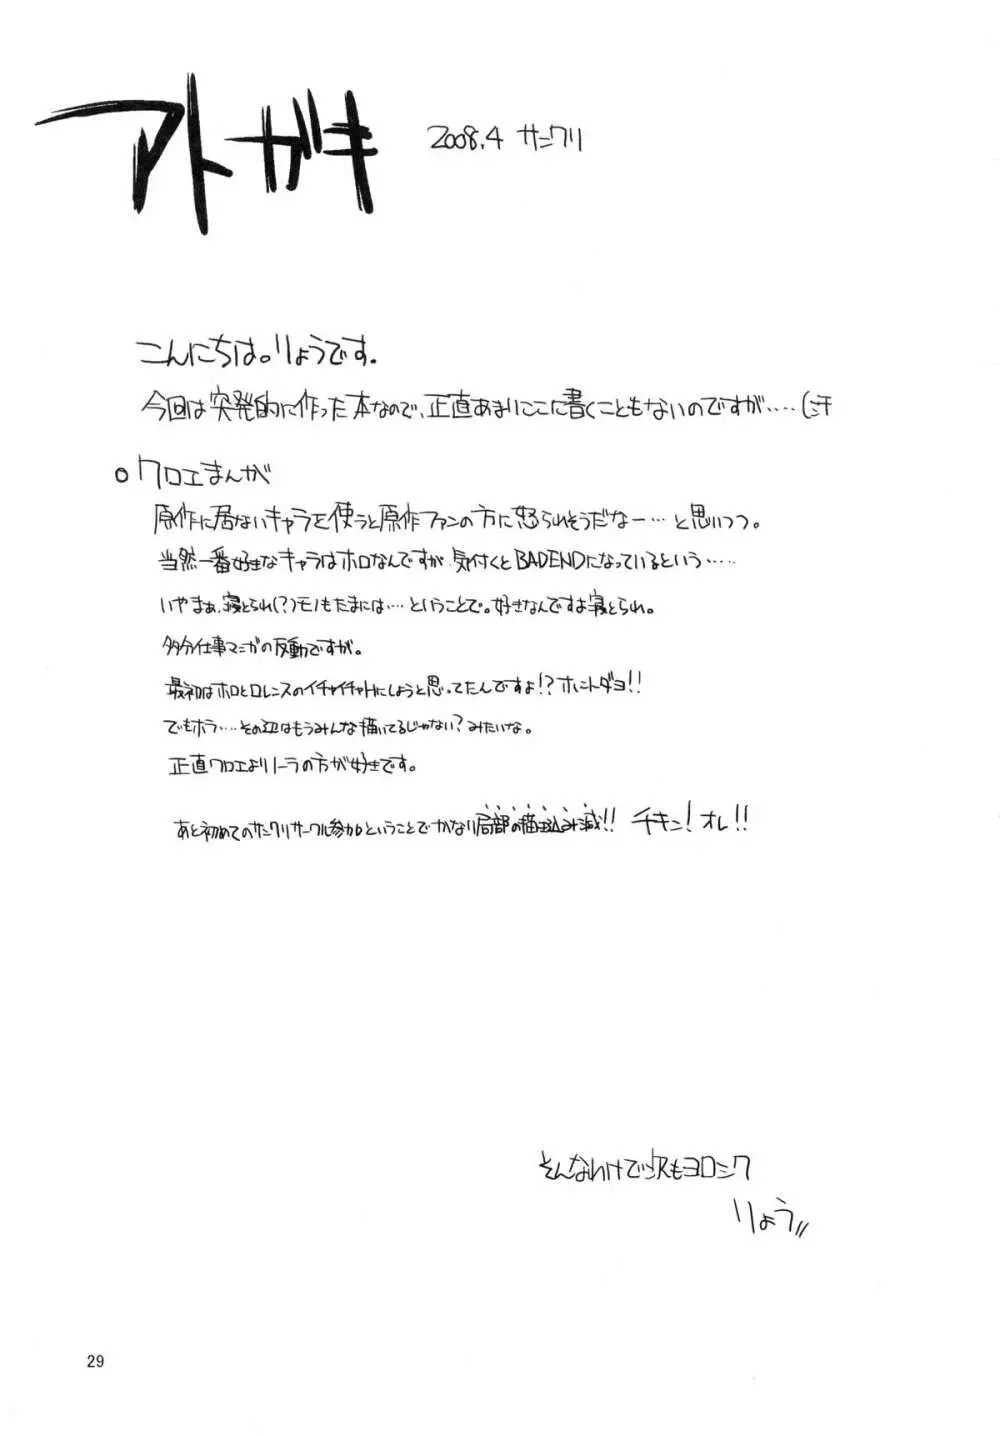 アトガキ
2008.4 サンクリ
こんにちは。りょうです。
今回は突発的に作った本なので、正直あまりここに書くこともないのですが‥‥(汗
○クロエまんが
原作に居ないキャラを使うと原作ファンの方に怒られそうだなー…と思いつつ。
当然一番好きなキャラはホロなんですが 気付くとBADENDになっているという……
いやまぁ、寝とられ(?)モノもたまには‥‥ということで。好きなんですよ寝とられ。
多分仕事マンガの反動ですが。
最初はホロとロレンスのイチャイチャHにしようと思ってたんですよ!?ホントダヨ!!
でもホラ‥‥その辺はもうみんな描いてるじゃない?みたいな。
正直クロエよりノーラの方が好きです。
あと初めてのサンクリサークル参加ということでかなり局部の描き込み減!! チキン!オレ!!
そんなわけで次もヨロシク
りょう//
29